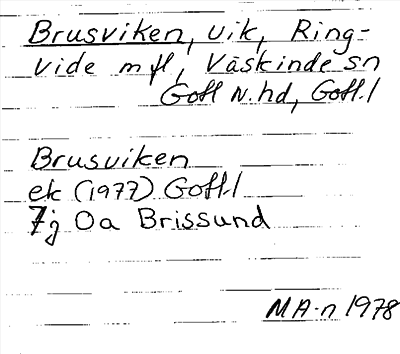 Brusviken, vik, Ring-
vide m fl, Väskinde sn
Gotl N. hd, Gotl. l
Brusviken
ek (1977) Gotl. l
7j Oa Brissund
MA-n 1978